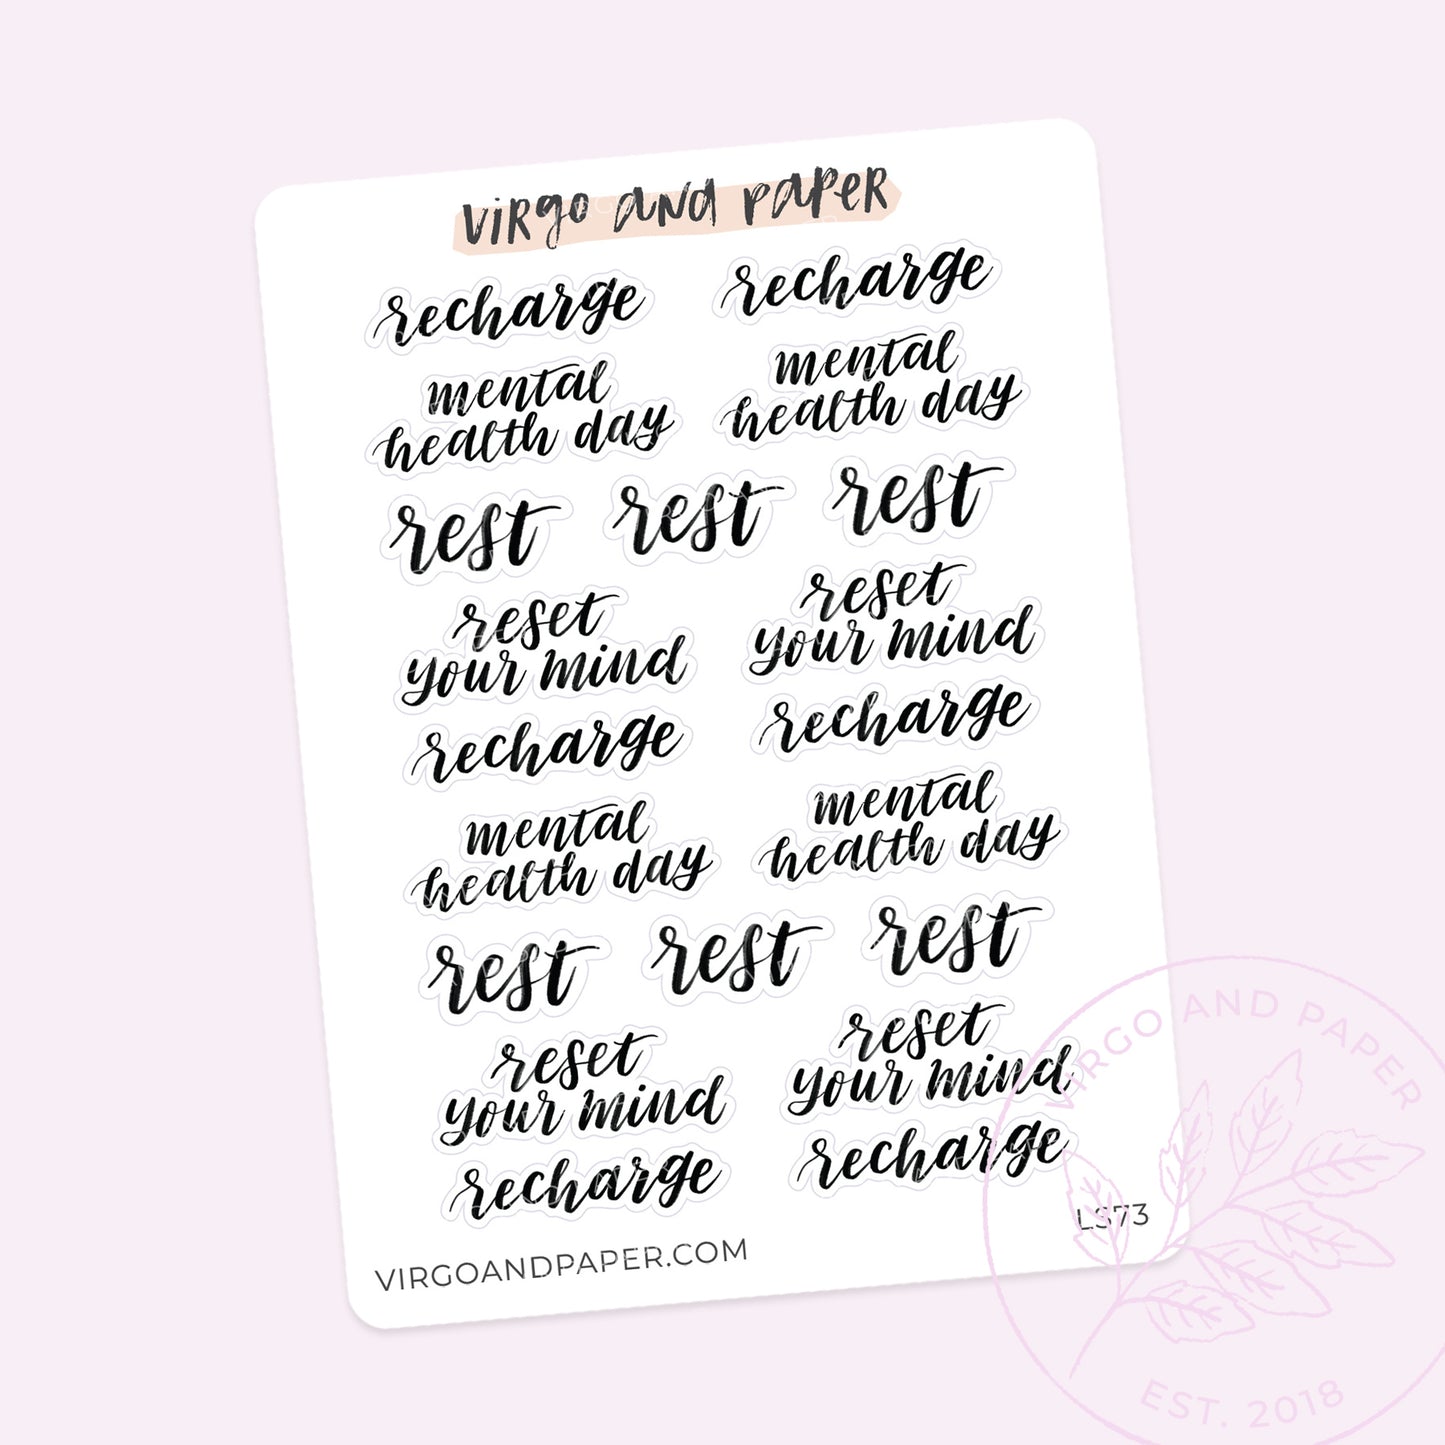 VIRGO AND PAPER
recharge recharge
mental mental
health day health day
rest rest rest
reset reset
your mind your mind
recharge recharge
mental mental
health day health day
rest rest rest
reset reset
your mind your mind
recharge recharge
LS73
VIRGOANDPAPER.COM
VIRGO AND PAPER
EST. 2018